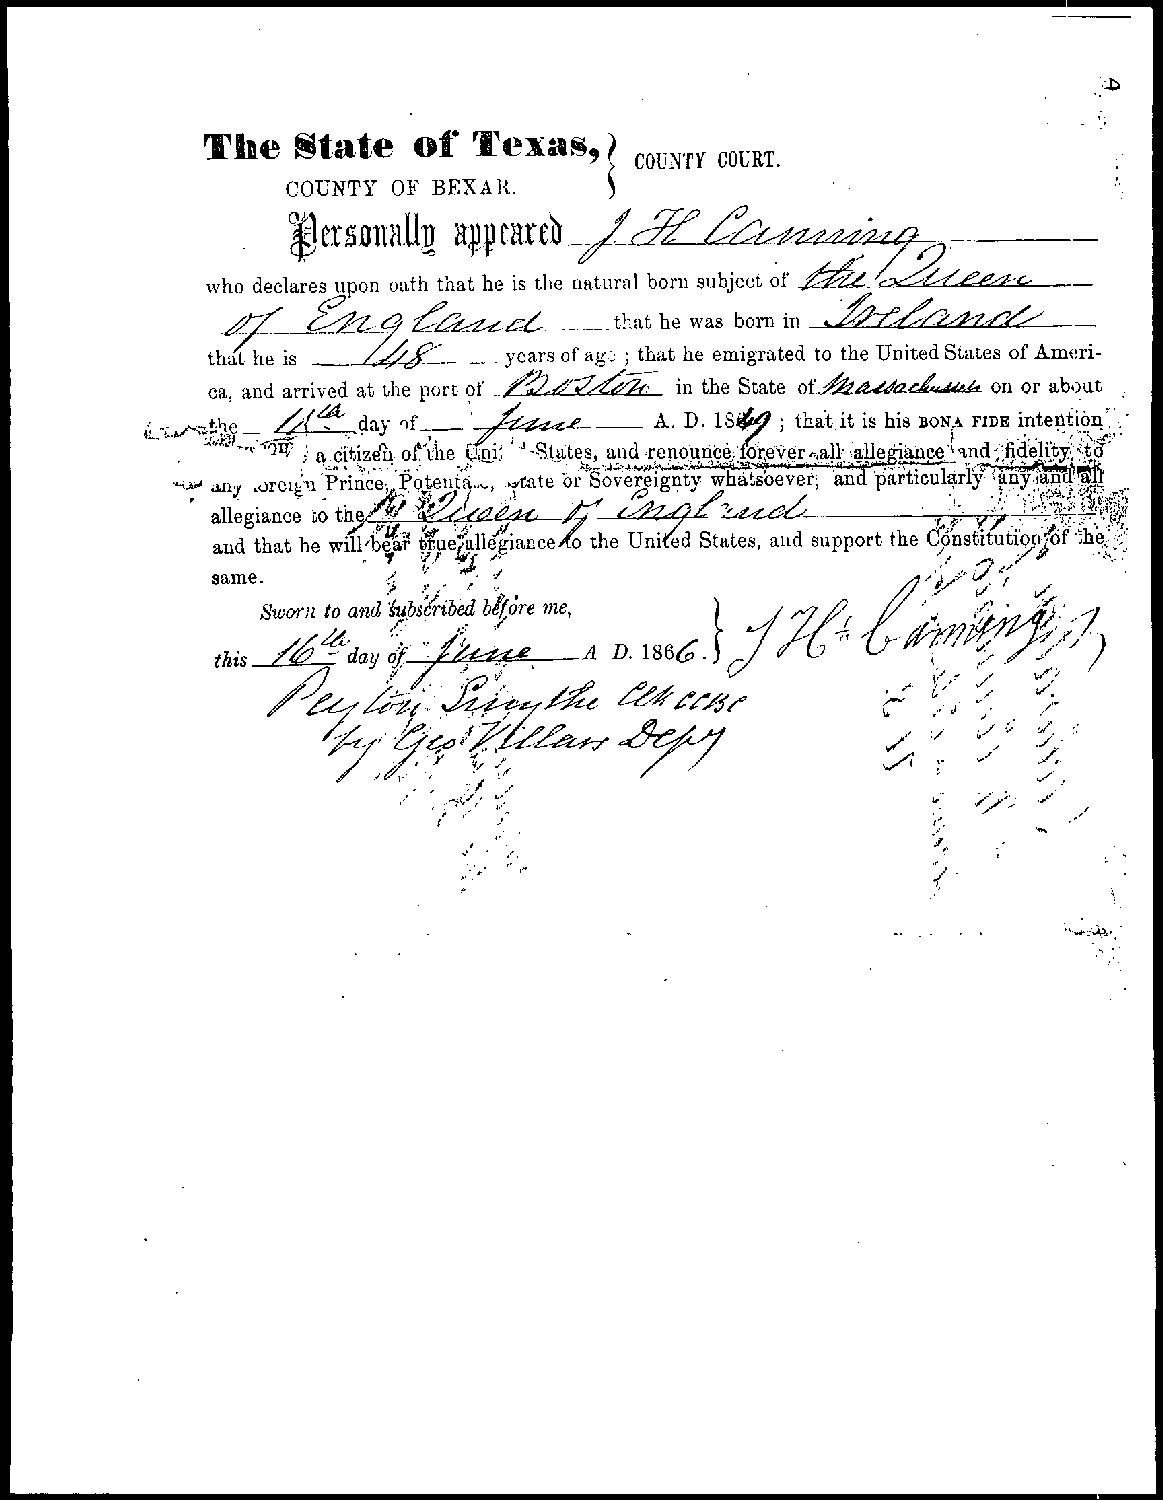 The State of Texas, } COUNTY COURT.
COUNTY OF BEXAR.
Personally appeared J H Canning
who declares upon oath that he is the natural born subject of the Queen
of England that he was born in Ireland
that he is 48 years of age ; that he emigrated to the United States of Ameri-
ca, and arrived at the port of Boston in the State of Massachusetts on or about
the day of June A. D. 1849 ; that it is his BONA FIDE intention
a citizen of the States, and renounce forever all allegiance and fidelity to
any foreign Prince, Potentate, State or Sovereignty whatsoever, and particularly any and all
allegiance to the Queen of England
and that he will bear true allegiance to the United States, and support the Constitution of the
same.
Sworn to and subscribed before me,
this 16th day of June A D. 1866. } J H Canning
Peyton Smythe Clk CCBC
by Geo Depy